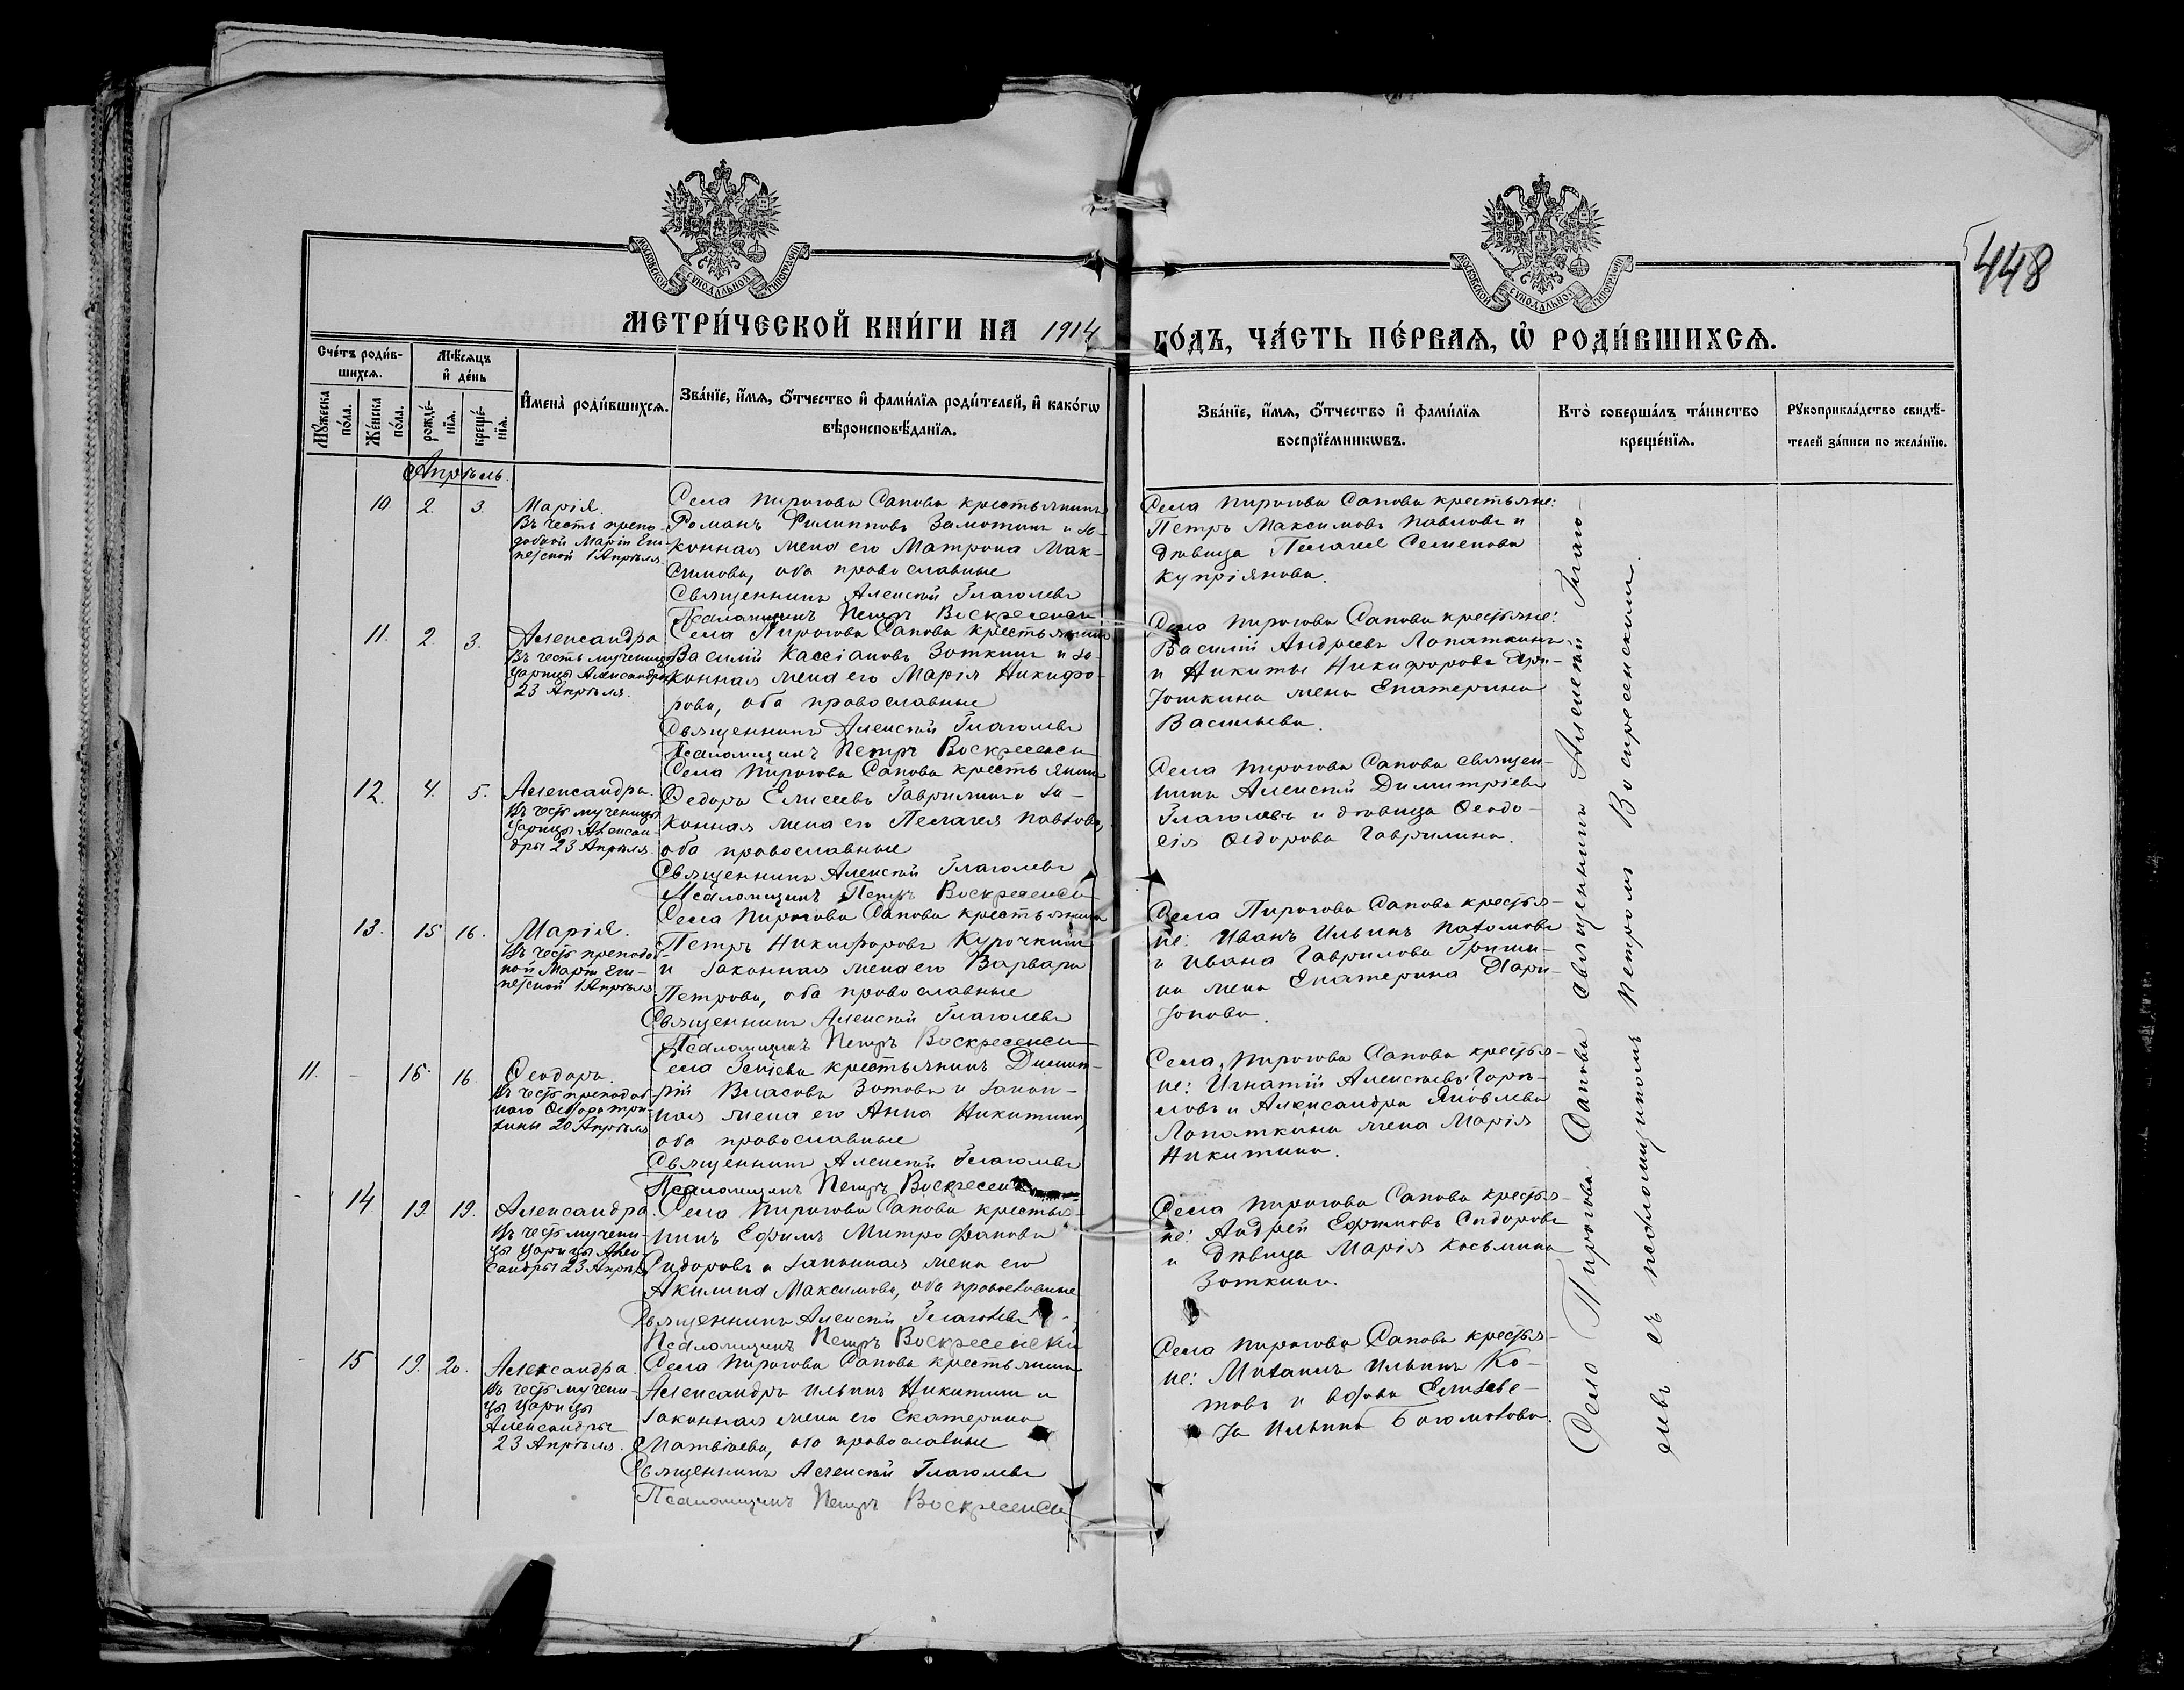 448
МОСКОВСКОЙ СѴНОДАЛЬНОЙ ТИПОГРАФІИ
МОСКОВСКОЙ СѴНОДАЛЬНОЙ ТИПОГРАФІИ
МЕТРИ́ЧЕСКОЙ КНИ́ГИ НА 1914 ГО́ДЪ, ЧА́СТЬ ПЕ́РВАѦ, Ѡ РОДИ́ВШИХСѦ.
Сче́тъ роди́в-
шихсѧ.
Мꙋ́жеска по́ла.
Же́нска по́ла.
Мѣ́сѧцъ
и҆ де́нь
рожде́-
нїѧ.
креще́-
нїѧ.
И҆мена̀ роди́вшихсѧ.
Зва́нїе, и҆́мѧ, ѻ҆́тчество и҆ фами́лїѧ роди́телей, и҆ како́гѡ
вѣроисповѣ́данїѧ.
Зва́нїе, и҆́мѧ, ѻ҆́тчество и҆ фами́лїѧ
воспрїе́мникѡвъ.
Кто̀ соверша́лъ та́инство
креще́нїѧ.
Рꙋкоприкла́дство свидѣ́-
телей за́писи по жела́нїю.
Апрѣль.
10 2. 3.
Марія.
Въ честь препо-
добной Маріи Еги-
петской 1 Апрѣля.
Села Пирогова Сапова крестьянинъ
Романъ Филипповъ Замотинъ и за-
конная жена его Матрона Мак-
симова, оба православные
Священникъ Алексѣй Глаголевъ
Псаломщикъ Петръ Воскресенск
Села Пирогова Сапова крестьяне:
Петръ Максимовъ Павловъ и
дѣвица Пелагея Семенова
Купріянова.
11. 2. 3.
Александра
Въ честь мученицы
Царицы Александры
23 Апрѣля.
Села Пирогова Сапова крестьянинъ
Василій Кассіановъ Зоткинъ и за-
конная жена его Марія Никифо-
рова, оба православные
Священникъ Алексѣй Глаголевъ
Псаломщикъ Петръ Воскресенск
Села Пирогова Сапова крестьяне:
Василій Андреевъ Лопаткинъ
и Никиты Никифорова
жена Екатерина
Васильева.
12. 4. 5.
Александра.
Въ честь мученицы
Царицы Алексан-
дры 23 Апрѣля.
Села Пирогова Сапова крестьянинъ
Ѳедоръ Елисеевъ Гаврилинъ и за-
конная жена его Пелагея Павлова,
оба православные
Священникъ Алексѣй Глаголевъ
Псаломщикъ Петръ Воскресенск
Села Пирогова Сапова священ-
никъ Алексѣй Димитріевъ
Глаголевъ и дѣвица Ѳеодо-
сія Ѳедорова Гаврилина.
13. 15 16.
Марія.
Въ честь преподоб-
ной Маріи Еги-
петской 1 Апрѣля
Села Пирогова Сапова крестьянинъ
Петръ Никифоровъ Курочкинъ
и законная жена его Варвара
Петрова, оба православные
Священникъ Алексѣй Глаголевъ
Псаломщикъ Петръ Воскресенск
Села Пирогова Сапова крестья-
не: Иванъ Ильинъ
и Ивана Гаврилова Гриши-
на жена Екатерина Хари-
тонова.
11. - 15. 16.
Ѳеодоръ.
Въ честь преподоб-
наго Ѳеодора три-
хины 20 Апрѣля
Села крестьянинъ Димит-
рій Власовъ Зотовъ и закон-
ная жена его Анна Никитина,
оба православные
Священникъ Алексѣй Глаголевъ
Псаломщикъ Петръ Воскресенск
Села Пирогова Сапова крестья-
не: Игнатій Алексѣевъ Горѣ-
ловъ и Александра Яковлева
Лопаткина жена Марія
Никитина.
- 14 19. 19.
Александра.
Въ честь мучени-
цы Царицы Алек-
сандры 23 Апрѣля
Села Пирогова Сапова крестья-
нинъ Ефимъ Митрофановъ
Сидоровъ и законная жена его
Акилина Максимова, оба православные
Священникъ Алексѣй Глаголевъ
Псаломщикъ Петръ Воскресенскій
Села Пирогова Сапова крестья-
не: Андрей Ефимовъ Сидоровъ
и дѣвица Марія Косьмина
Зоткина.
- 15 19. 20.
Александра.
Въ честь мучени-
цы Царицы
Александры
23 Апрѣля.
Села Пирогова Сапова крестьянинъ
Александръ Ильинъ Никитинъ и
законная жена его Екатерина
Матвѣева, оба православные
Священникъ Алексѣй Глаголевъ
Псаломщикъ Петръ Воскресенск
Села Пирогова Сапова крестья-
не: Михаилъ Ильинъ Ко-
товъ и вдова Елизаве-
та Ильина Богомолова.
Села Пирогова Сапова священникъ Алексѣй Глаго-
левъ съ псаломщикомъ Петромъ Воскресенскимъ.